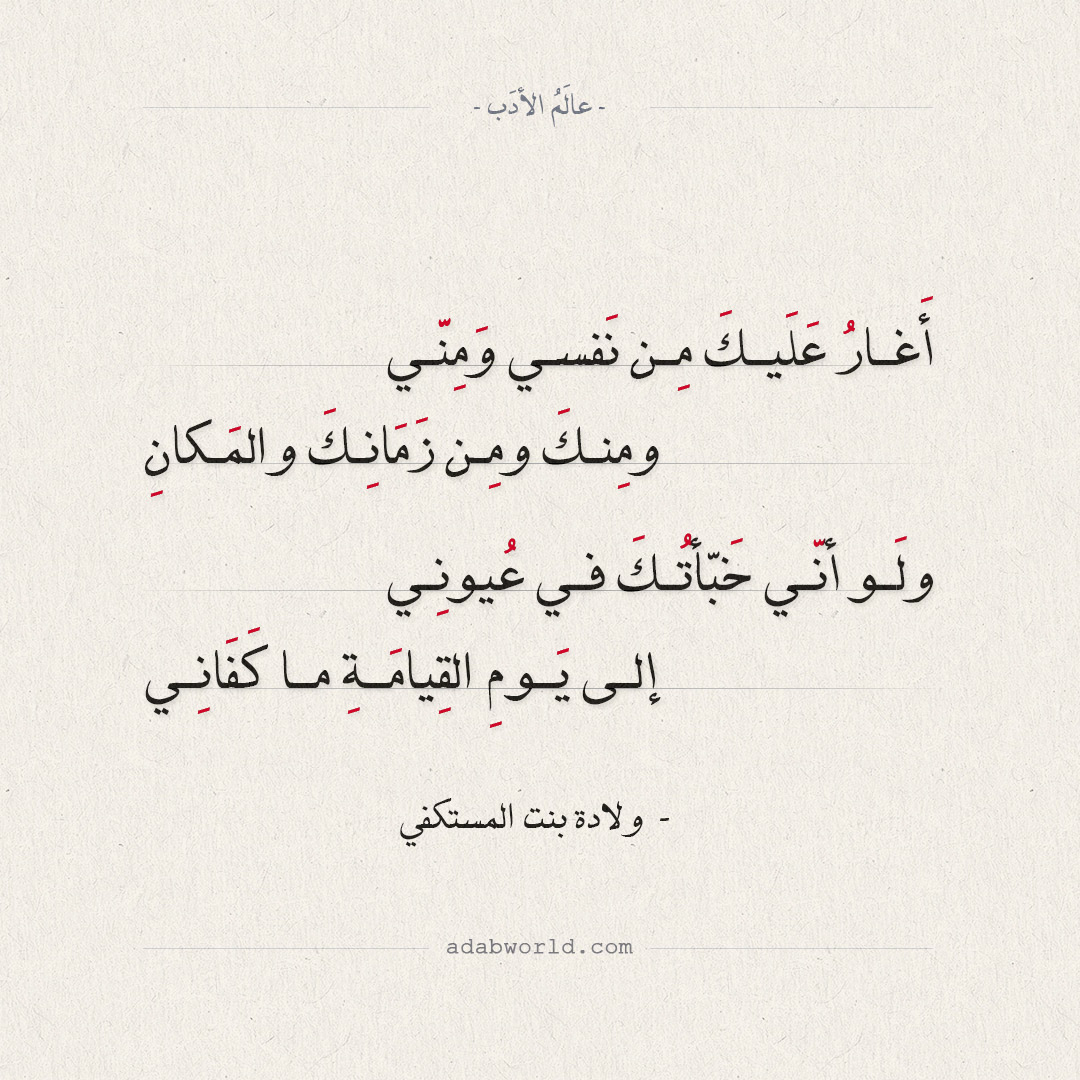 - عالَمُ الأدَب -
أَغـارُ عَلَيـكَ مِـن نَفسـي وَمِنّـي
ومِنـكَ ومِـن زَمَانِـكَ والمَـكانِ
ولَـو أنّـي خَبّأتُـكَ فـي عُيونِـي
إلـى يَـومِ القِيامَـةِ مـا كَفَانِـي
- ولادة بنت المستكفي
adabworld.com